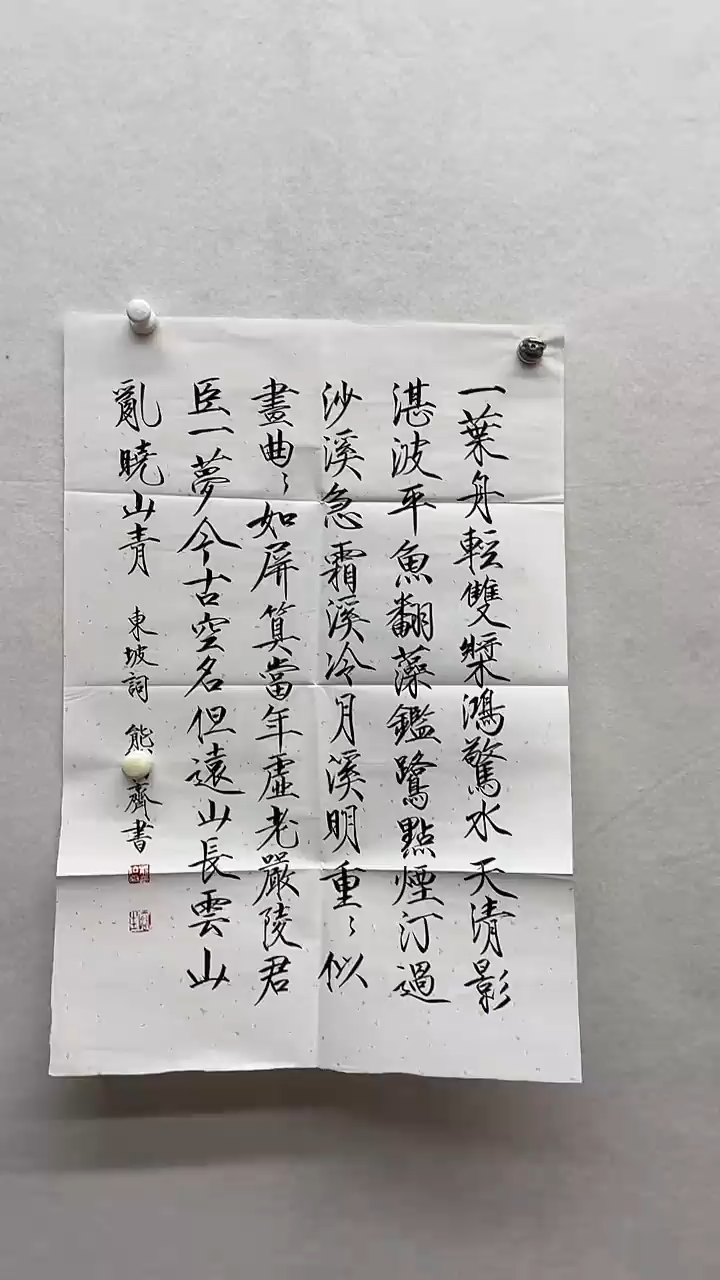 一葉舟輕雙槳鴻驚水天清影
湛波平魚翻藻鑑鷺點煙汀過
沙溪急霜溪冷月溪明重〻似
畫曲〻如屏算當年虛老嚴陵君
臣一夢今古空名但遠山長雲山
亂曉山青
東坡詞 熊 齋書